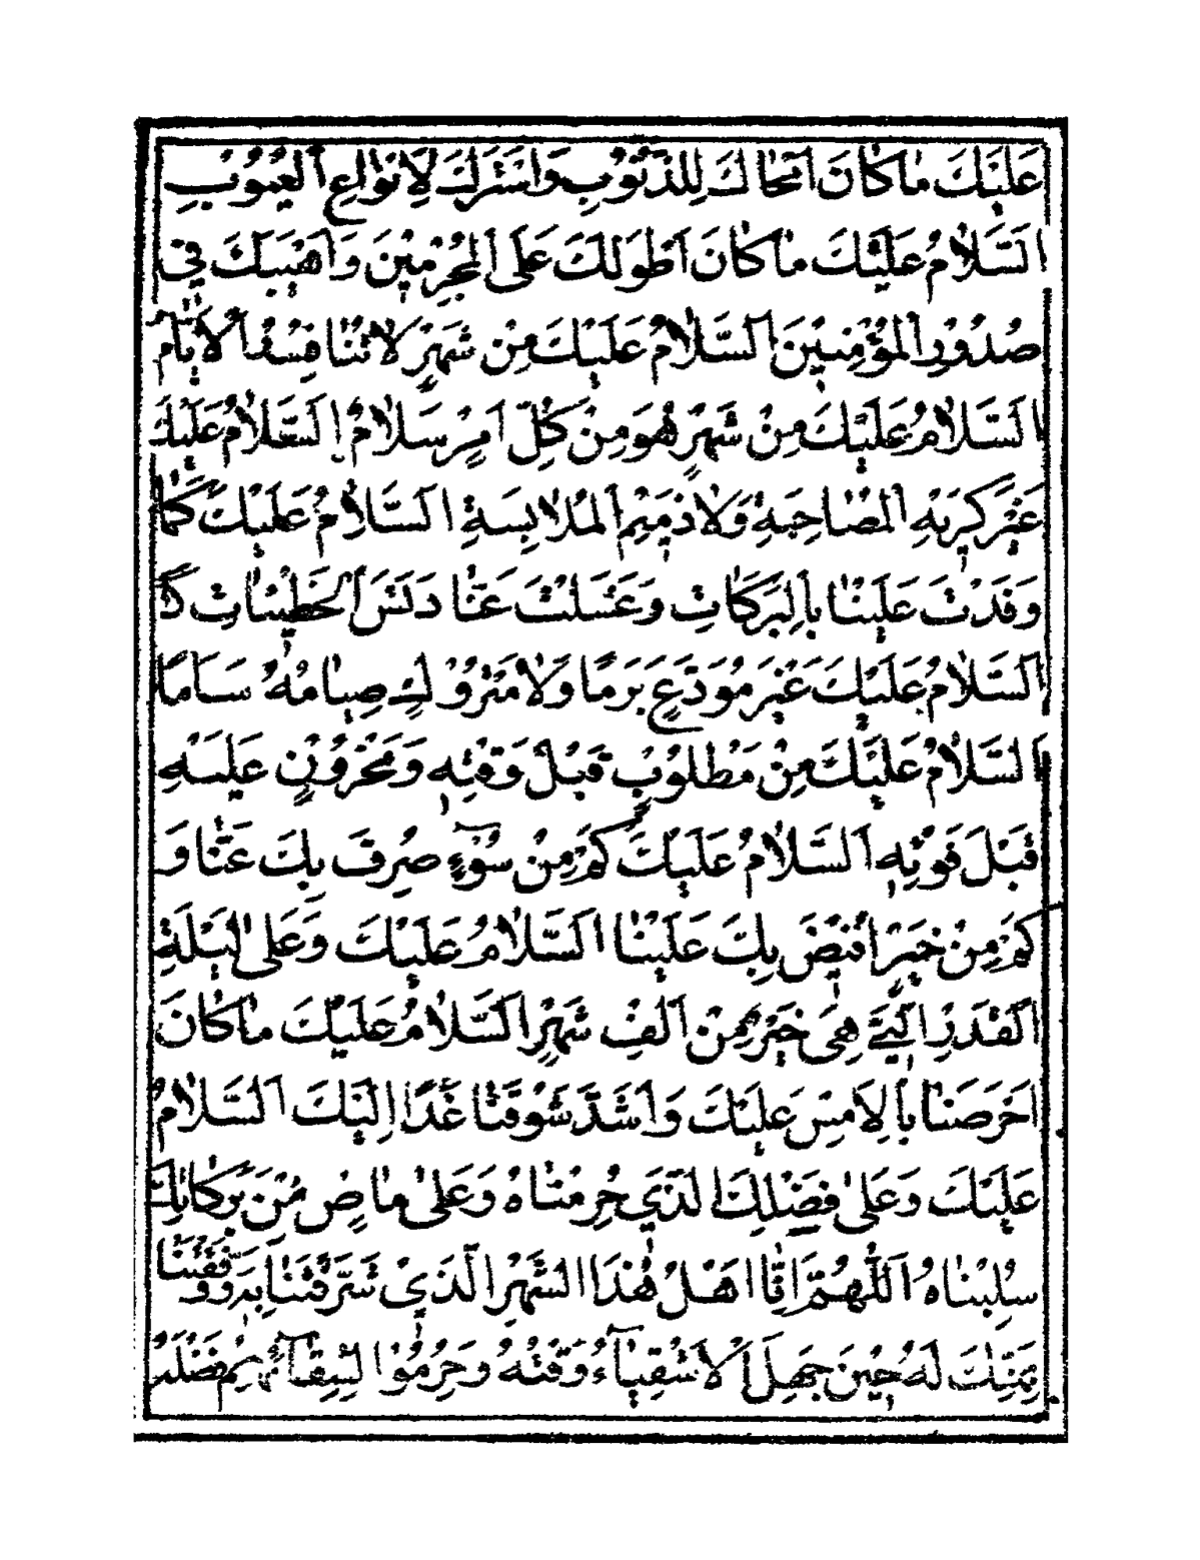 عَلَيْكَ مَا كَانَ اَمْحَاكَ لِلذُّنُوبِ وَاَسْتَرَكَ لِاَنْوَاعِ الْعُيُوبِ
اَلسَّلَامُ عَلَيْكَ مَا كَانَ اَطْوَلَكَ عَلَى الْمُجْرِمِيْنَ وَاَهْيَبَكَ فِي
صُدُوْرِ الْمُؤْمِنِيْنَ اَلسَّلَامُ عَلَيْكَ مِنْ شَهْرٍ لَا تُنَافِسُهُ الْاَيَّامُ
اَلسَّلَامُ عَلَيْكَ مِنْ شَهْرٍ هُوَ مِنْ كُلِّ اَمْرٍ سَلَامٌ اَلسَّلَامُ عَلَيْكَ
غَيْرَ كَرِيهِ الْمُصَاحَبَةِ وَلَا ذَمِيْمِ الْمُلَابَسَةِ اَلسَّلَامُ عَلَيْكَ كَمَا
وَفَدْتَ عَلَيْنَا بِالْبَرَكَاتِ وَغَسَلْتَ عَنَّا دَنَسَ الْخَطِيْئَاتِ
اَلسَّلَامُ عَلَيْكَ غَيْرَ مُوَدَّعٍ بَرَمًا وَلَا مَتْرُوْكٍ صِيَامُهُ سَأَمًا
اَلسَّلَامُ عَلَيْكَ مِنْ مَطْلُوْبٍ قَبْلَ وَقْتِهِ وَمَحْزُوْنٍ عَلَيْهِ
قَبْلَ فَوْتِهِ اَلسَّلَامُ عَلَيْكَ كَمْ مِنْ سُوْءٍ صُرِفَ بِكَ عَنَّا وَ
كَمْ مِنْ خَيْرٍ اُفِيْضَ بِكَ عَلَيْنَا اَلسَّلَامُ عَلَيْكَ وَعَلَى لَيْلَةِ
الْقَدْرِ الَّتِيْ هِيَ خَيْرٌ مِنْ اَلْفِ شَهْرٍ اَلسَّلَامُ عَلَيْكَ مَا كَانَ
اَحْرَصَنَا بِالْاَمْسِ عَلَيْكَ وَاَشَدَّ شَوْقَنَا غَدًا اِلَيْكَ اَلسَّلَامُ
عَلَيْكَ وَعَلَى فَضْلِكَ الَّذِيْ حُرِمْنَاهُ وَعَلَى مَاضٍ مِنْ بَرَكَاتِكَ
سُلِبْنَاهُ اَللّٰهُمَّ اِنَّا اَهْلُ هٰذَا الشَّهْرِ الَّذِيْ شَرَّفْتَنَا بِهِ وَوَفَّقْتَنَا
بِمَنِّكَ لَهُ حِيْنَ جَهِلَ الْاَشْقِيَاءُ وَقْتَهُ وَحُرِمُوْا لِشِقَائِهِمْ فَضْلَهُ